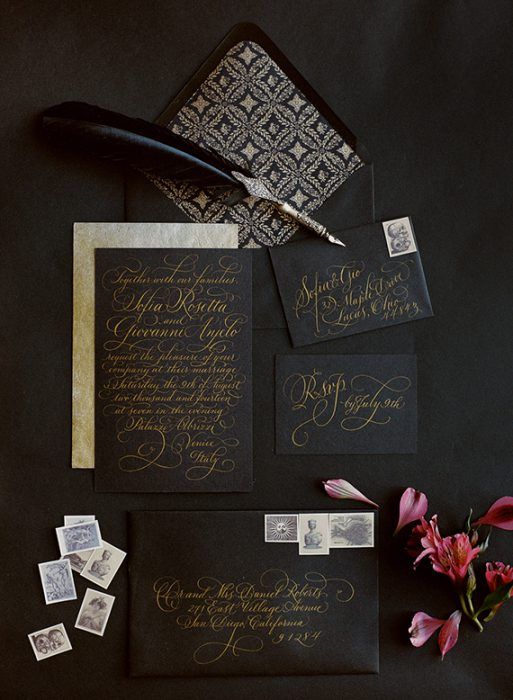 Together with our families,
Sofia Rosetta
and
Giovanni Anjelo
request the pleasure of your
company at their marriage
Saturday the 9th of August
two thousand and fourteen
at seven in the evening
Palazzo
Venice
Italy
Sofia & Gio
32 Maple Drive
Lucas, Ohio
44843
RSVP
by July 9th
Mr and Mrs Daniel Roberts
271 East, Village Avenue
San Diego, California
91284